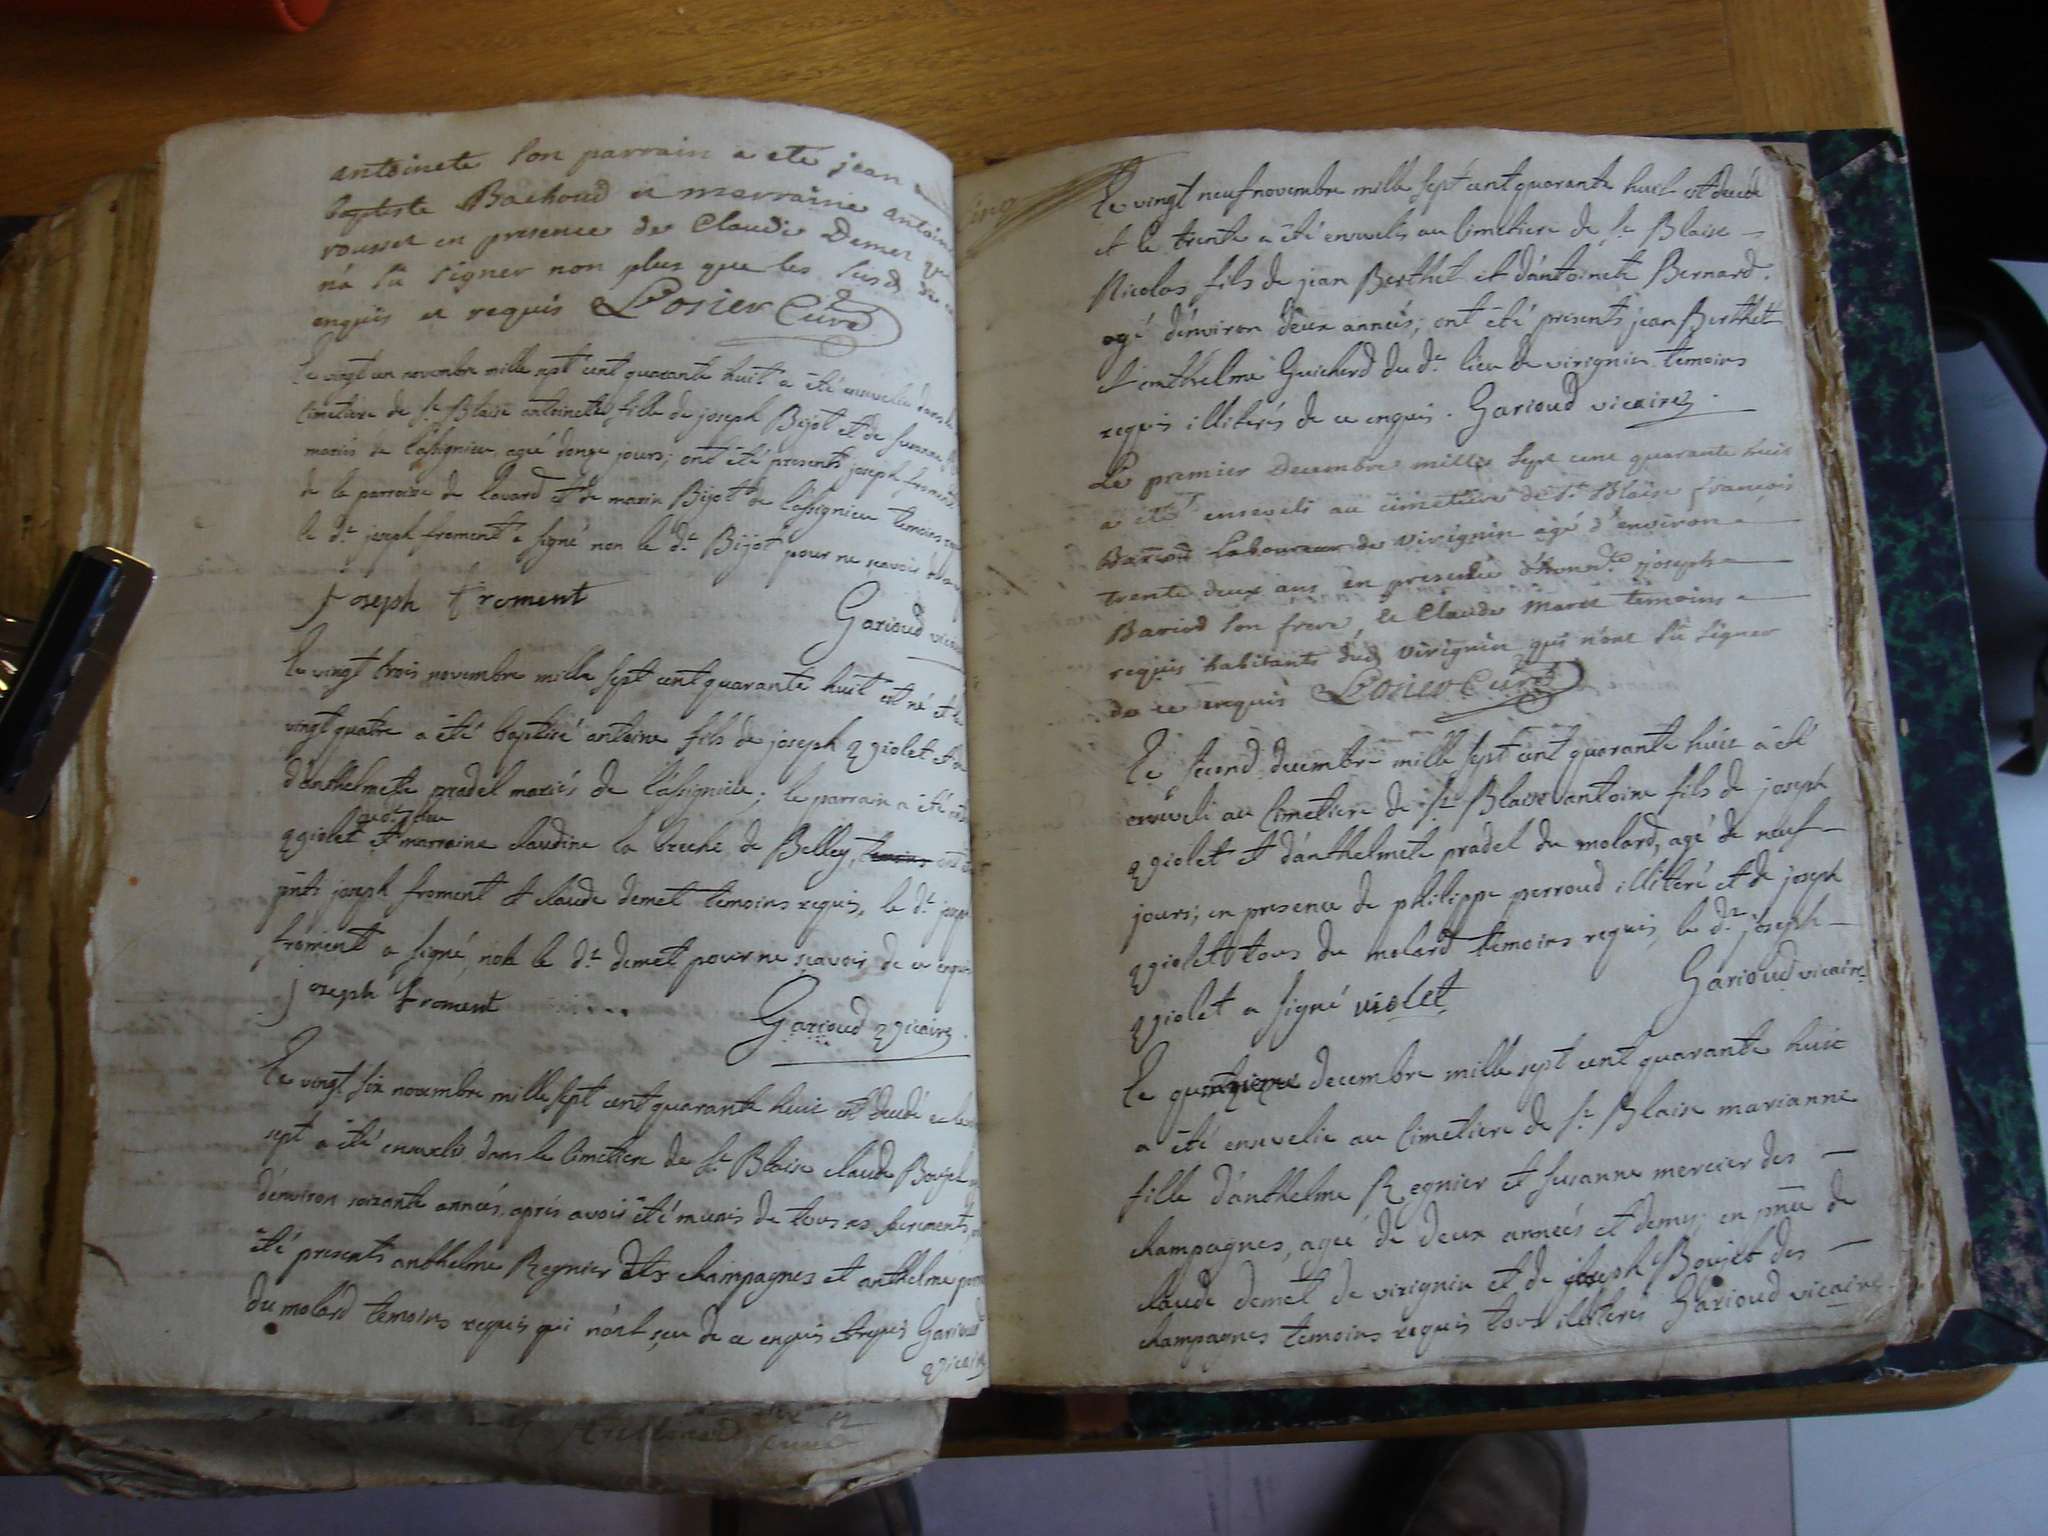 antoinete son parrain a ete jean
baptiste Bachoud et marraine antoin
rousset en presence de Claude Demet qui
n'a sû signer non plus que les susd
enquis et requis Losier Curé
Le vingt un novembre mille sept cent quarante huit a été ensevelie dans le
Cimetiere de St Blaise antoinette fille de joseph Bijot et de susanne
mariés de Lassignieu ageé donze jours; ont été presents joseph froment
de la parroisse de Lavard et de marin Bijot de Lassignieu temoins requis
le dt joseph froment a signé non le dt Bijot pour ne scavoir
joseph froment
Garioud vicaire
Le vingt trois novembre mille sept cent quarante huit est né et le
vingt quatre a été baptisé antoine fils de joseph Violet et
d'anthelmete pradel mariés de Lassignieu; le parrain a été
dudt lieu
Violet et marraine claudine la breche de Belley, temoins ont été
pnts joseph froment et claude demet temoins requis, le dt joseph
froment a signé, non le dt demet pour ne scavoir de ce enquis
joseph froment
Garioud Vicaire.
Le vingt six novembre mille sept cent quarante huit est decedé et le
sept a été ensevelis dans le Cimetiere de St Blaise claude Boujet
d'environ soixante anneés, aprés avoir été munis de tous ses sacrements,
été presents anthelme Regnier des champagnes et anthelme
du molard temoins requis qui n'ont sçeu de ce enquis et requis Garioud
Vicaire
Le vingt neuf novembre mille sept cent quarante huit est decedé
et le trente a été ensevelis au Cimetiere de St Blaise
Nicolas fils de jean Berthet et d'antoinete Bernard.
agé d'environ deux anneés; ont été presents jean Berthet
et anthelme Guicherd du dt lieu de virignin temoins
requis illiterés de ce enquis. Garioud vicaire.
Le premier Decembre mille sept cent quarante huit
a été enseveli au cimetiere de St Blaise francois
Bariod Laboureur de Virignin agé d'environ
trente deux ans en presence d'honnte joseph
Bariod son frere, et Claude Maret temoins
requis habitants dud Virignin qui n'ont sû signer
de ce enquis Losier Curé
Le second decembre mille sept cent quarante huit a été
enseveli au Cimetiere de St Blaise antoine fils de joseph
Violet et d'anthelmete pradel du molard, agé de neuf
jours; en presence de philippe perroud illiteré et de joseph
Violet tous du molard temoins requis, le dt joseph
Violet a signé violet
Garioud vicaire
Le quatrieme decembre mille sept cent quarante huit
a été ensevelie au Cimetiere de St Blaise marianne
fille d'anthelme Regnier et susanne mercier des
champagnes, ageé de deux anneés et demy; en pnce de
claude demet de virignin et de joseph Boujet des
champagnes temoins requis tous illiterés Garioud vicaire